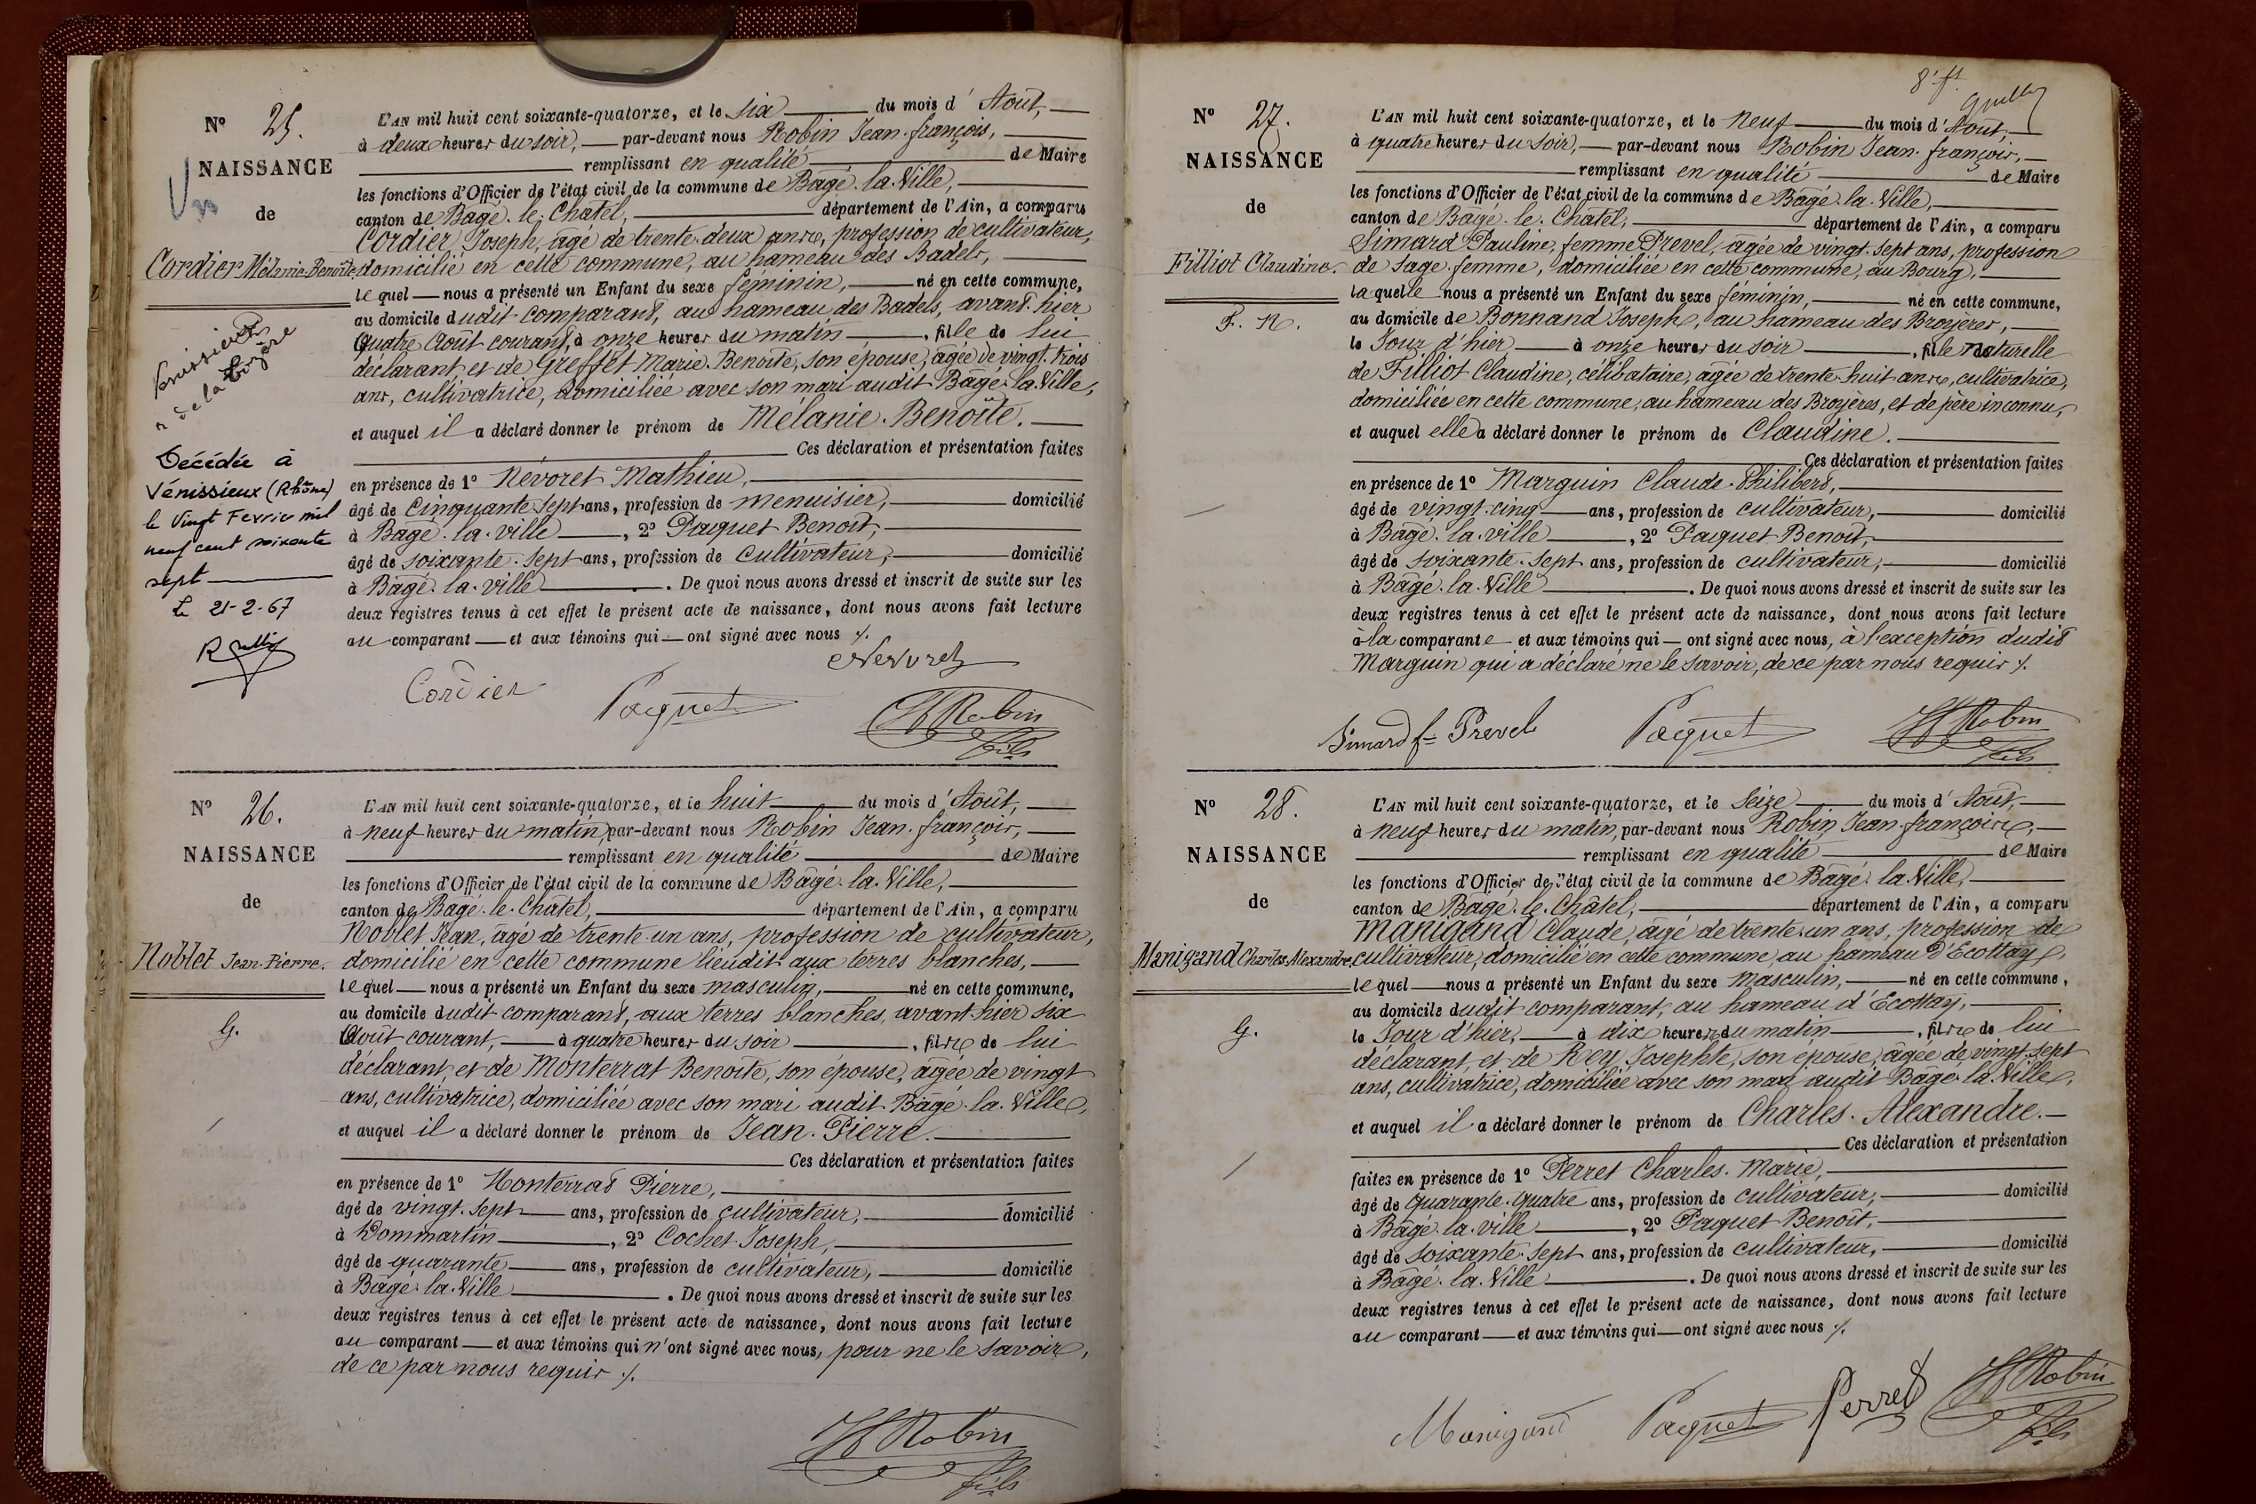 Nº 25.
NAISSANCE
de
Cordier Mélanie-Benoîte
Décédée à
Vénissieux (Rhône)
le Vingt Fevrier mil
neuf cent soixante
sept
Le 21-2-67
L'AN mil huit cent soixante-quatorze, et le six du mois d'Août,
à deux heures du soir, par-devant nous Robin Jean-françois,
remplissant en qualité de Maire
les fonctions d'Officier de l'état civil de la commune de Bâgé-la-Ville,
canton de Bâgé-le-Châtel, département de l'Ain, a comparu
Cordier Joseph, âgé de trente-deux ans, profession de cultivateur,
domicilié en cette commune, au hameau des Badels,
lequel nous a présenté un Enfant du sexe féminin, né en cette commune,
au domicile dudit comparant, au hameau des Badels, avant-hier
quatre Août courant, à onze heures du matin, fille de lui
déclarant et de Greffet Marie-Benoîte, son épouse, âgée de vingt-trois
ans, cultivatrice, domiciliée avec son mari audit Bâgé-la-Ville,
et auquel il a déclaré donner le prénom de Mélanie-Benoîte.
Ces déclaration et présentation faites
en présence de 1º Névoret Mathieu,
âgé de cinquante-sept ans, profession de menuisier, domicilié
à Bâgé-la-ville, 2º Paquet Benoît,
âgé de soixante-sept ans, profession de cultivateur, domicilié
à Bâgé-la-ville. De quoi nous avons dressé et inscrit de suite sur les
deux registres tenus à cet effet le présent acte de naissance, dont nous avons fait lecture
au comparant et aux témoins qui ont signé avec nous ./.
Cordier Paquet Nevoret
JF Robin
fils
Nº 26.
NAISSANCE
de
Noblet Jean-Pierre.
G.
L'AN mil huit cent soixante-quatorze, et le huit du mois d'Août,
à neuf heures du matin, par-devant nous Robin Jean-françois,
remplissant en qualité de Maire
les fonctions d'Officier de l'état civil de la commune de Bâgé-la-Ville,
canton de Bâgé-le-Châtel, département de l'Ain, a comparu
Noblet Jean, âgé de trente-un ans, profession de cultivateur,
domicilié en cette commune lieudit aux terres blanches,
lequel nous a présenté un Enfant du sexe masculin, né en cette commune,
au domicile dudit comparant, aux terres blanches, avant-hier six
Août courant, à quatre heures du soir, fils de lui
déclarant et de Monterrat Benoîte, son épouse, âgée de vingt
ans, cultivatrice, domiciliée avec son mari audit Bâgé-la-Ville,
et auquel il a déclaré donner le prénom de Jean-Pierre.
Ces déclaration et présentation faites
en présence de 1º Monterrat Pierre,
âgé de vingt-sept ans, profession de cultivateur, domicilié
à Dommartin, 2º Cochet Joseph,
âgé de quarante ans, profession de cultivateur, domicilié
à Bâgé-la-Ville. De quoi nous avons dressé et inscrit de suite sur les
deux registres tenus à cet effet le présent acte de naissance, dont nous avons fait lecture
au comparant et aux témoins qui n'ont signé avec nous, pour ne le savoir,
de ce par nous requis ./.
JF Robin
fils
Nº 27.
NAISSANCE
de
Filliot Claudine.
F. N.
L'AN mil huit cent soixante-quatorze, et le neuf du mois d'Août,
à quatre heures du soir, par-devant nous Robin Jean-françois,
remplissant en qualité de Maire
les fonctions d'Officier de l'état civil de la commune de Bâgé-la-Ville,
canton de Bâgé-le-Châtel, département de l'Ain, a comparu
Simard Pauline, femme Prevel, âgée de vingt-sept ans, profession
de sage-femme, domiciliée en cette commune, au Bourg,
laquelle nous a présenté un Enfant du sexe féminin, né en cette commune,
au domicile de Bonnand Joseph, au hameau des Broyères,
le Jour d'hier à onze heures du soir, fille naturelle
de Filliot Claudine, célibataire, âgée de trente-huit ans, cultivatrice,
domiciliée en cette commune, au hameau des Broyères, et de père inconnu,
et auquel elle a déclaré donner le prénom de Claudine.
Ces déclaration et présentation faites
en présence de 1º Marguin Claude-Philibert,
âgé de vingt-cinq ans, profession de cultivateur, domicilié
à Bâgé-la-ville, 2º Paquet Benoît,
âgé de soixante-sept ans, profession de cultivateur, domicilié
à Bâgé-la-Ville. De quoi nous avons dressé et inscrit de suite sur les
deux registres tenus à cet effet le présent acte de naissance, dont nous avons fait lecture
à la comparante et aux témoins qui ont signé avec nous, à l'exception dudit
Marguin qui a déclaré ne le savoir, de ce par nous requis ./.
Simard fe Prevel Paquet JF Robin
fils
Nº 28.
NAISSANCE
de
Manigand Charles-Alexandre.
G.
L'AN mil huit cent soixante-quatorze, et le seize du mois d'Août,
à neuf heures du matin, par-devant nous Robin Jean-françois,
remplissant en qualité de Maire
les fonctions d'Officier de l'état civil de la commune de Bâgé-la-Ville,
canton de Bâgé-le-Châtel, département de l'Ain, a comparu
Manigand Claude, âgé de trente-un ans, profession de
cultivateur, domicilié en cette commune, au hameau d'Ecottay,
lequel nous a présenté un Enfant du sexe masculin, né en cette commune,
au domicile dudit comparant, au hameau d'Ecottay,
le Jour d'hier, à dix heures du matin, fils de lui
déclarant, et de Rey Josephte, son épouse, âgée de vingt-sept
ans, cultivatrice, domiciliée avec son mari audit Bâgé-la-Ville,
et auquel il a déclaré donner le prénom de Charles-Alexandre.
Ces déclaration et présentation
faites en présence de 1º Perret Charles-Marie,
âgé de quarante-quatre ans, profession de cultivateur, domicilié
à Bâgé-la-ville, 2º Paquet Benoît,
âgé de soixante-sept ans, profession de cultivateur, domicilié
à Bâgé-la-Ville. De quoi nous avons dressé et inscrit de suite sur les
deux registres tenus à cet effet le présent acte de naissance, dont nous avons fait lecture
au comparant et aux témoins qui ont signé avec nous ./.
Manigand Paquet Perret JF Robin
fils